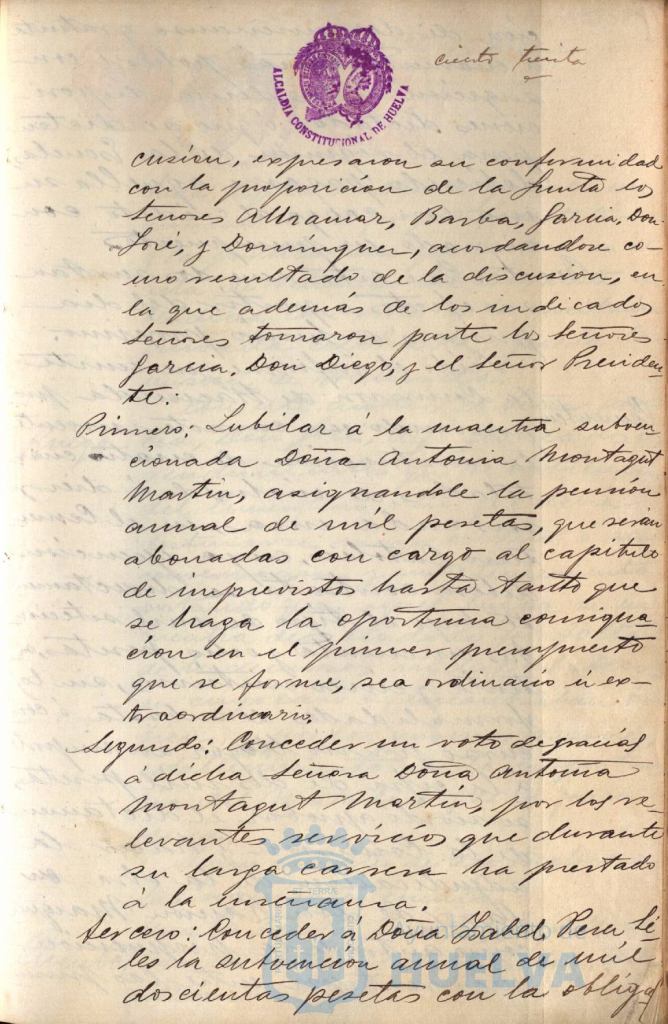 ciento treinta
ALCALDIA CONSTITUCIONAL DE HUELVA
cusion, expresaron su conformidad
con la proposicion de la Junta los
Señores Altramar, Barba, Garcia, Don
José, y Dominguer, acordandose co-
mo resultado de la discusion, en
la que además de los indicados
Señores tomaron parte los Señores
Garcia, Don Diego, y el Señor Presiden-
te:
Primero: Jubilar á la maestra subven-
cionada Doña Antonia Montagut
Martin, asignandole la pension
annal de mil pesetas, que serán
abonadas con cargo al capitulo
de imprevistos hasta tanto que
se haga la oportuna consigna-
cion en el primer presupuesto
que se forme, sea ordinario ú ex-
traordinario.
Segundo: Conceder un voto de gracias
á dicha Señora Doña Antonia
Montagut Martin, por los re-
levantes servicios que durante
su larga carrera ha prestado
á la enseñanza.
Tercero: Conceder á Doña Isabel Pera Sé-
les la subvención annal de mil
doscientas pesetas con la obliga
HUELVA